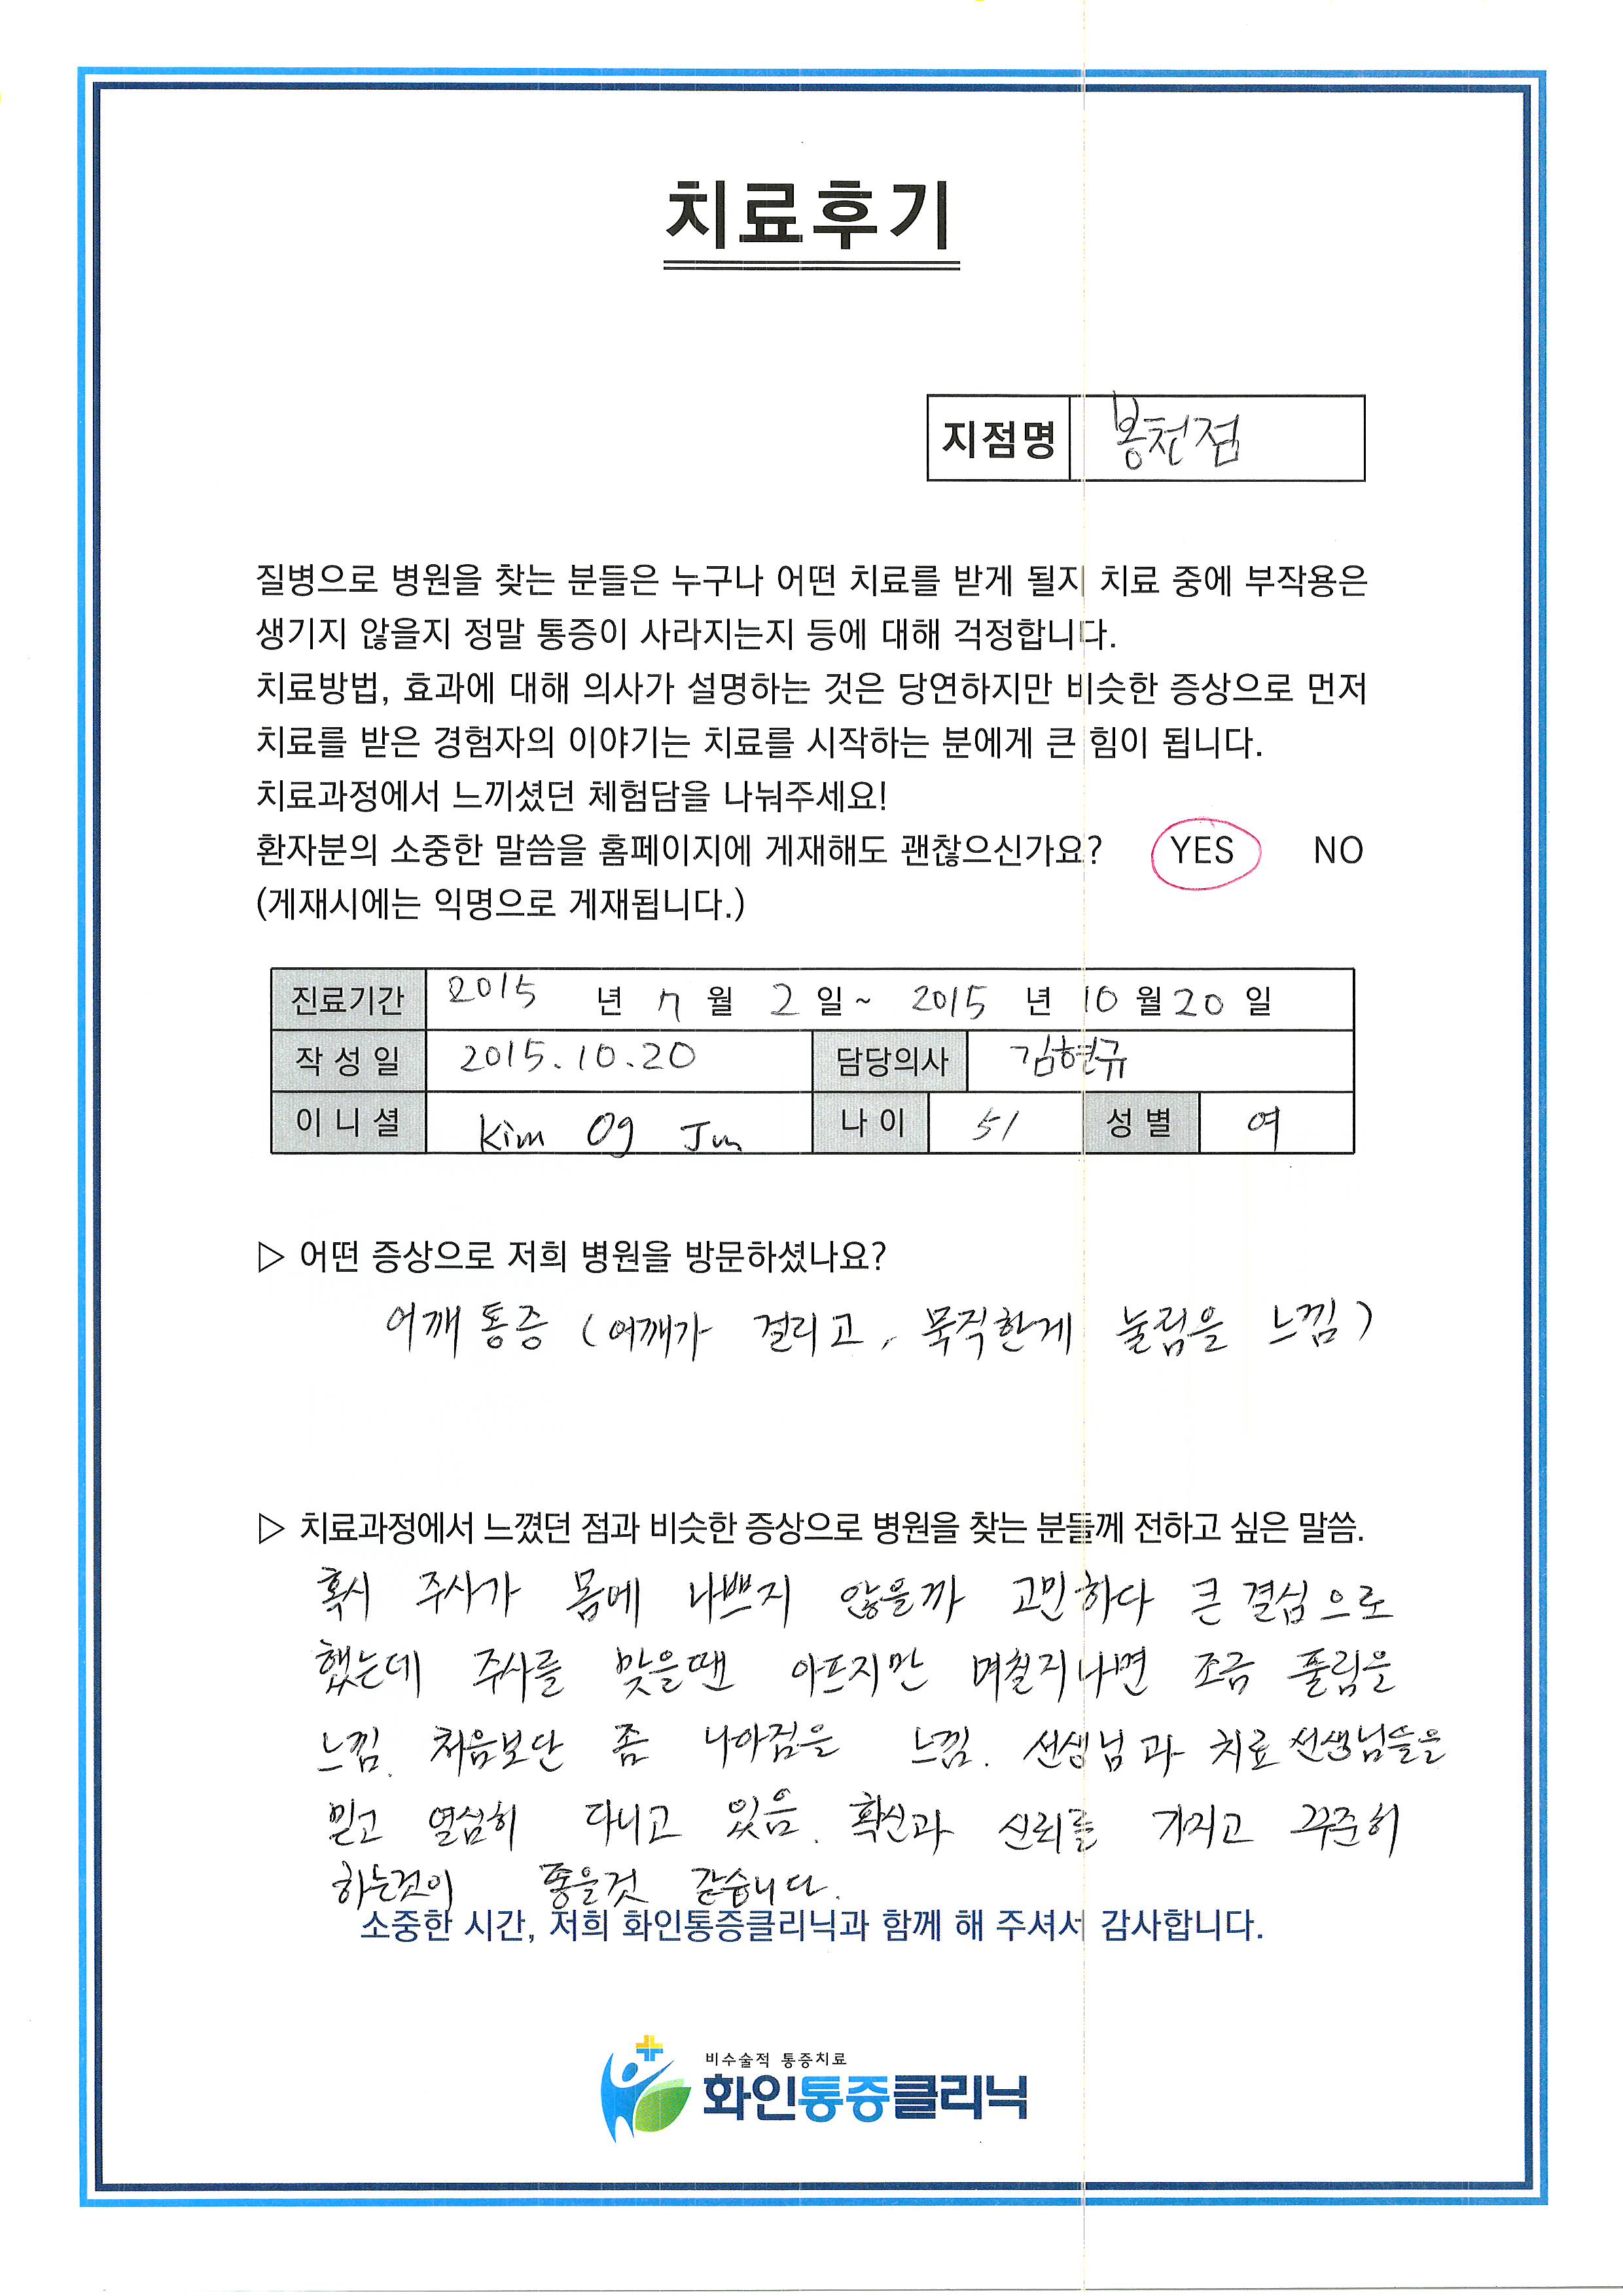 치료후기
지점명 봉천점
질병으로 병원을 찾는 분들은 누구나 어떤 치료를 받게 될지 치료 중에 부작용은
생기지 않을지 정말 통증이 사라지는지 등에 대해 걱정합니다.
치료방법, 효과에 대해 의사가 설명하는 것은 당연하지만 비슷한 증상으로 먼저
치료를 받은 경험자의 이야기는 치료를 시작하는 분에게 큰 힘이 됩니다.
치료과정에서 느끼셨던 체험담을 나눠주세요!
환자분의 소중한 말씀을 홈페이지에 게재해도 괜찮으신가요? YES NO
(게재시에는 익명으로 게재됩니다.)
진료기간 2015 년 7 월 2 일~ 2015 년 10 월 20 일
작성일 2015.10.20 담당의사 김현규
이니셜 Kim Og Jun 나이 51 성별 여
▷ 어떤 증상으로 저희 병원을 방문하셨나요?
어깨통증 (어깨가 걸리고, 묵직한게 눌림을 느낌)
▷ 치료과정에서 느꼈던 점과 비슷한 증상으로 병원을 찾는 분들께 전하고 싶은 말씀.
혹시 주사가 몸에 나쁘지 않을까 고민하다 큰 결심으로
했는데 주사를 맞을땐 아프지만 며칠지나면 조금 풀림을
느낌. 처음보단 좀 나아짐을 느낌. 선생님과 치료선생님들을
믿고 열심히 다니고 있음. 확신과 신뢰를 가지고 꾸준히
하는것이 좋을것 같습니다.
소중한 시간, 저희 화인통증클리닉과 함께 해 주셔서 감사합니다.
비수술적 통증치료
화인통증클리닉